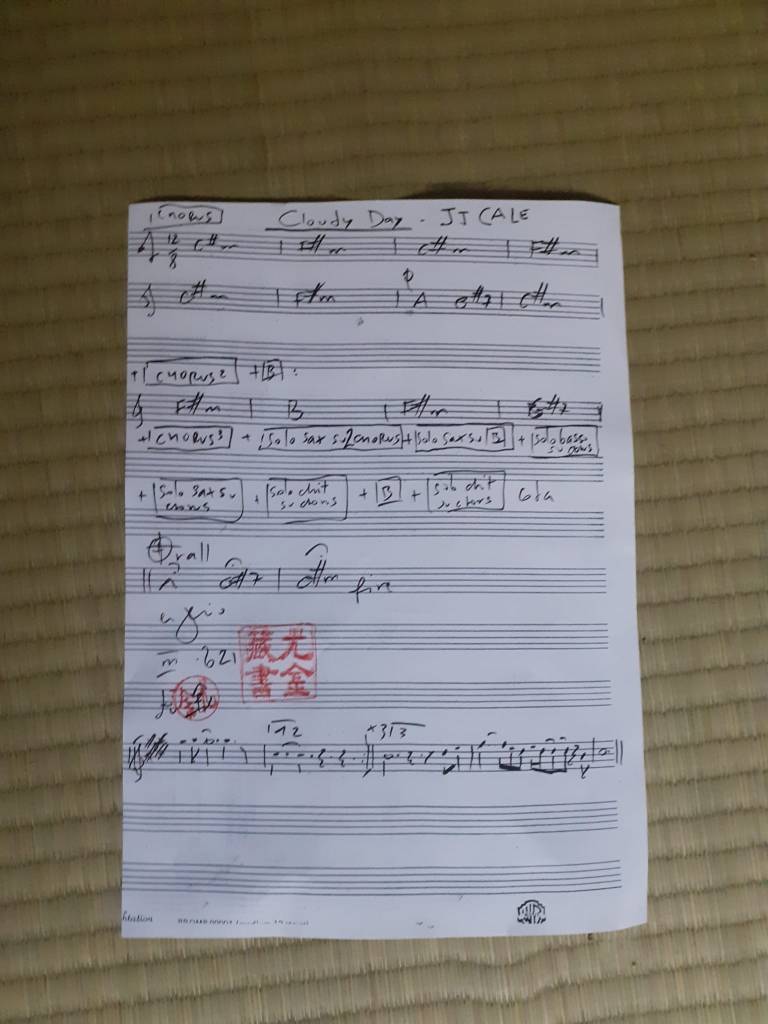 1 CHORUS Cloudy Day - JJ CALE
12/8 C#m | F#m | C#m | F#m |
C#m | F#m | A G#7 | C#m |
+ CHORUS 2 + B :
F#m | B | F#m | G#7
+ CHORUS 3 + Solo Sax su 2 CHORUS + Solo Sax su B + Solo basso su
+ Solo Sax su + Solo chit su + B + Solo chit su Coda
rall
A G#7 | C#m fine
m .621
藏 元
書 金
1 2 x3 3